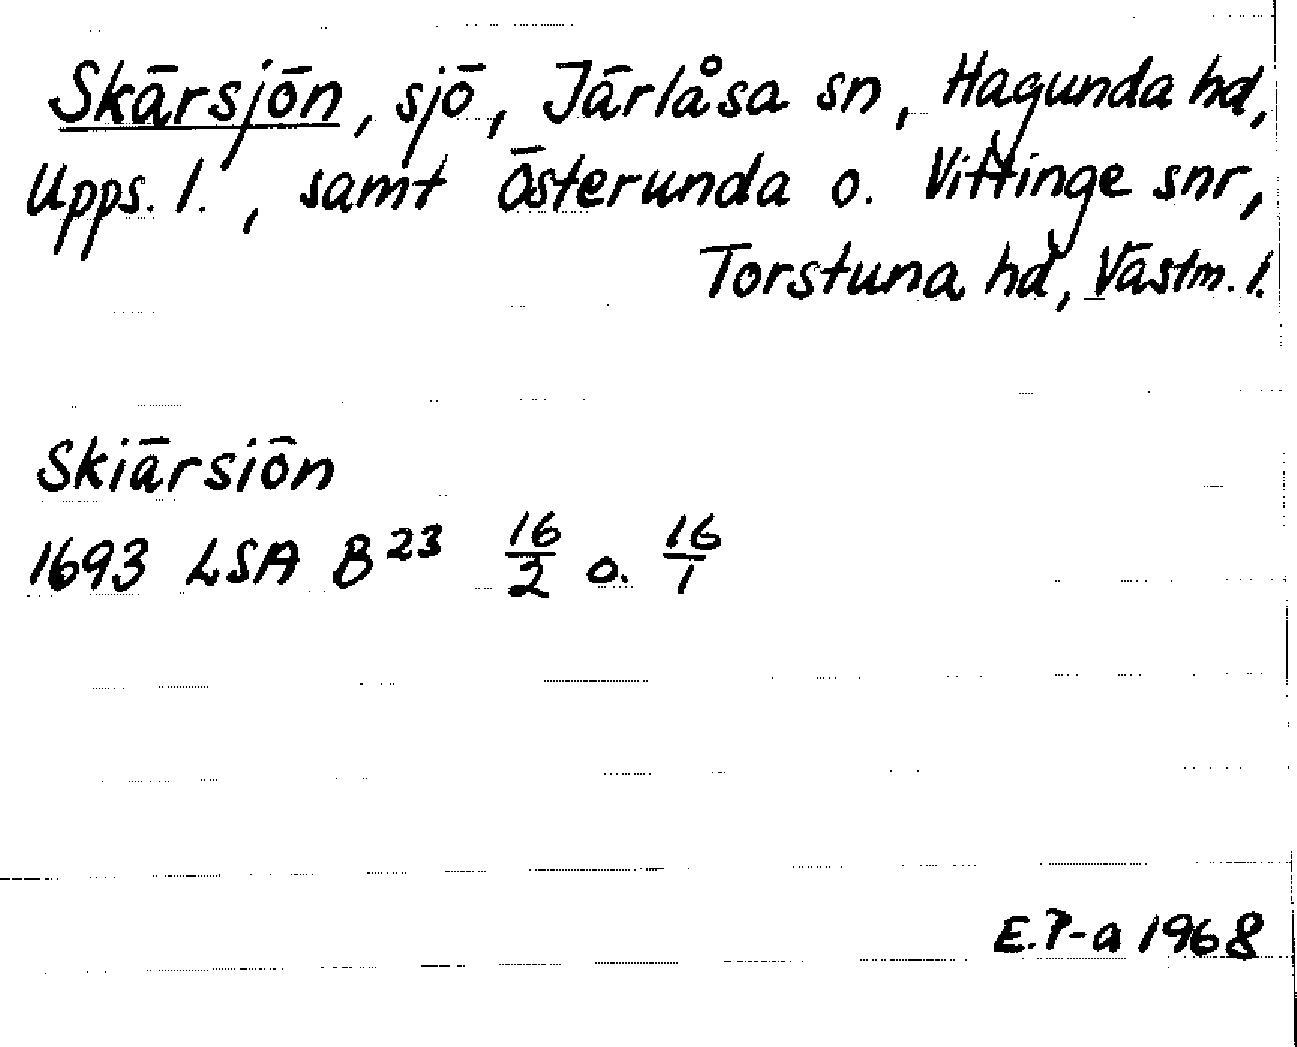 Skärsjön, sjö, Järlåsa sn, Hagunda hd,
Upps. l., samt Österunda o. Vittinge snr,
Torstuna hd, Västm. l.
Skiärsiön
1693 LSA B²³ 16/2 o. 16/1
E.P-a 1968